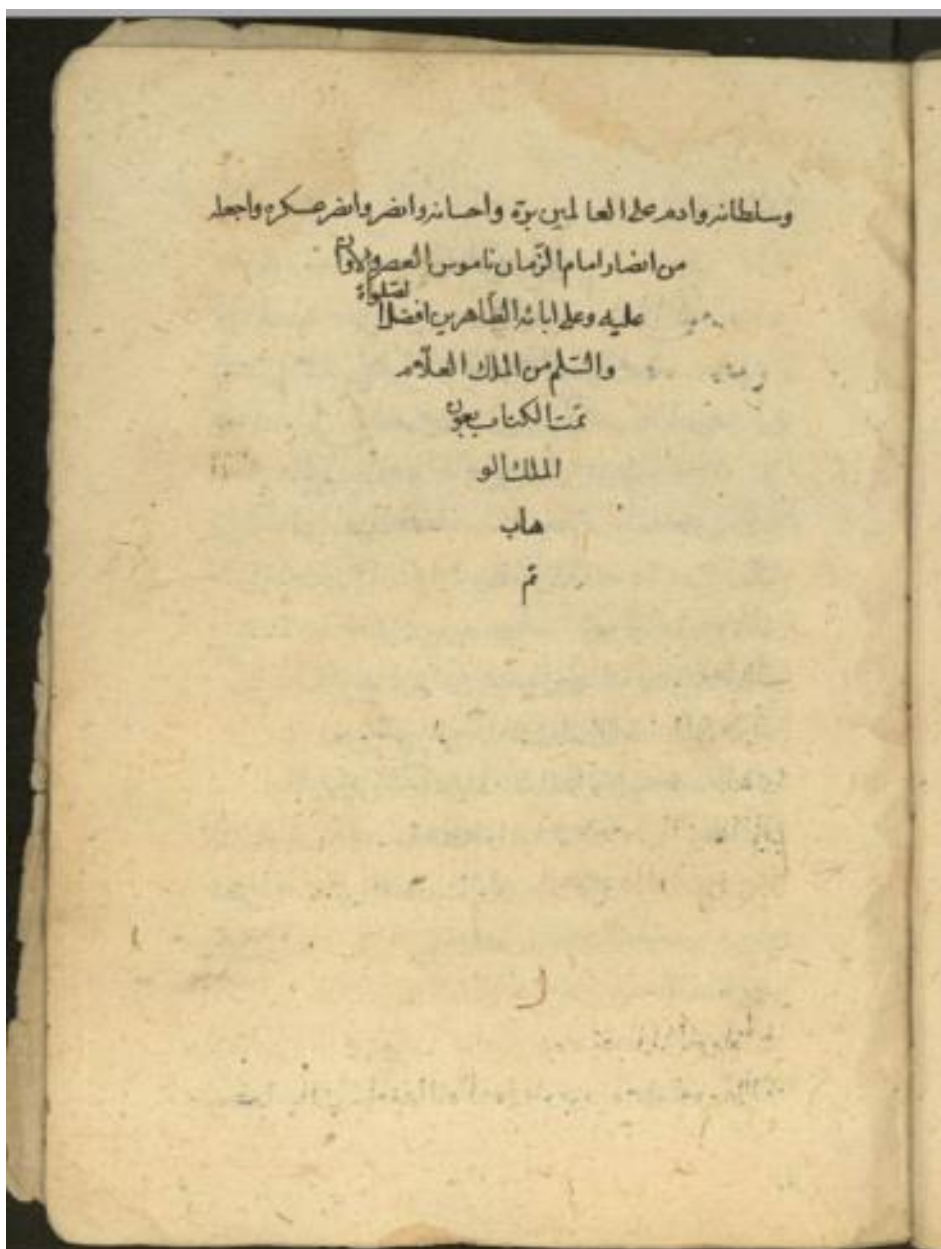 وسلطانه وادم على العالمين برّه واحسانه وانصر وانصر عسكره واجعله
من انصار امام الزّمان ناموس العصر والاوان
عليه وعلى ابائه الطّاهرين افضل الصّلواة
والسّلم من الملك العلّام
تمّت الكتاب بعون
الملك الو
هاب
تم